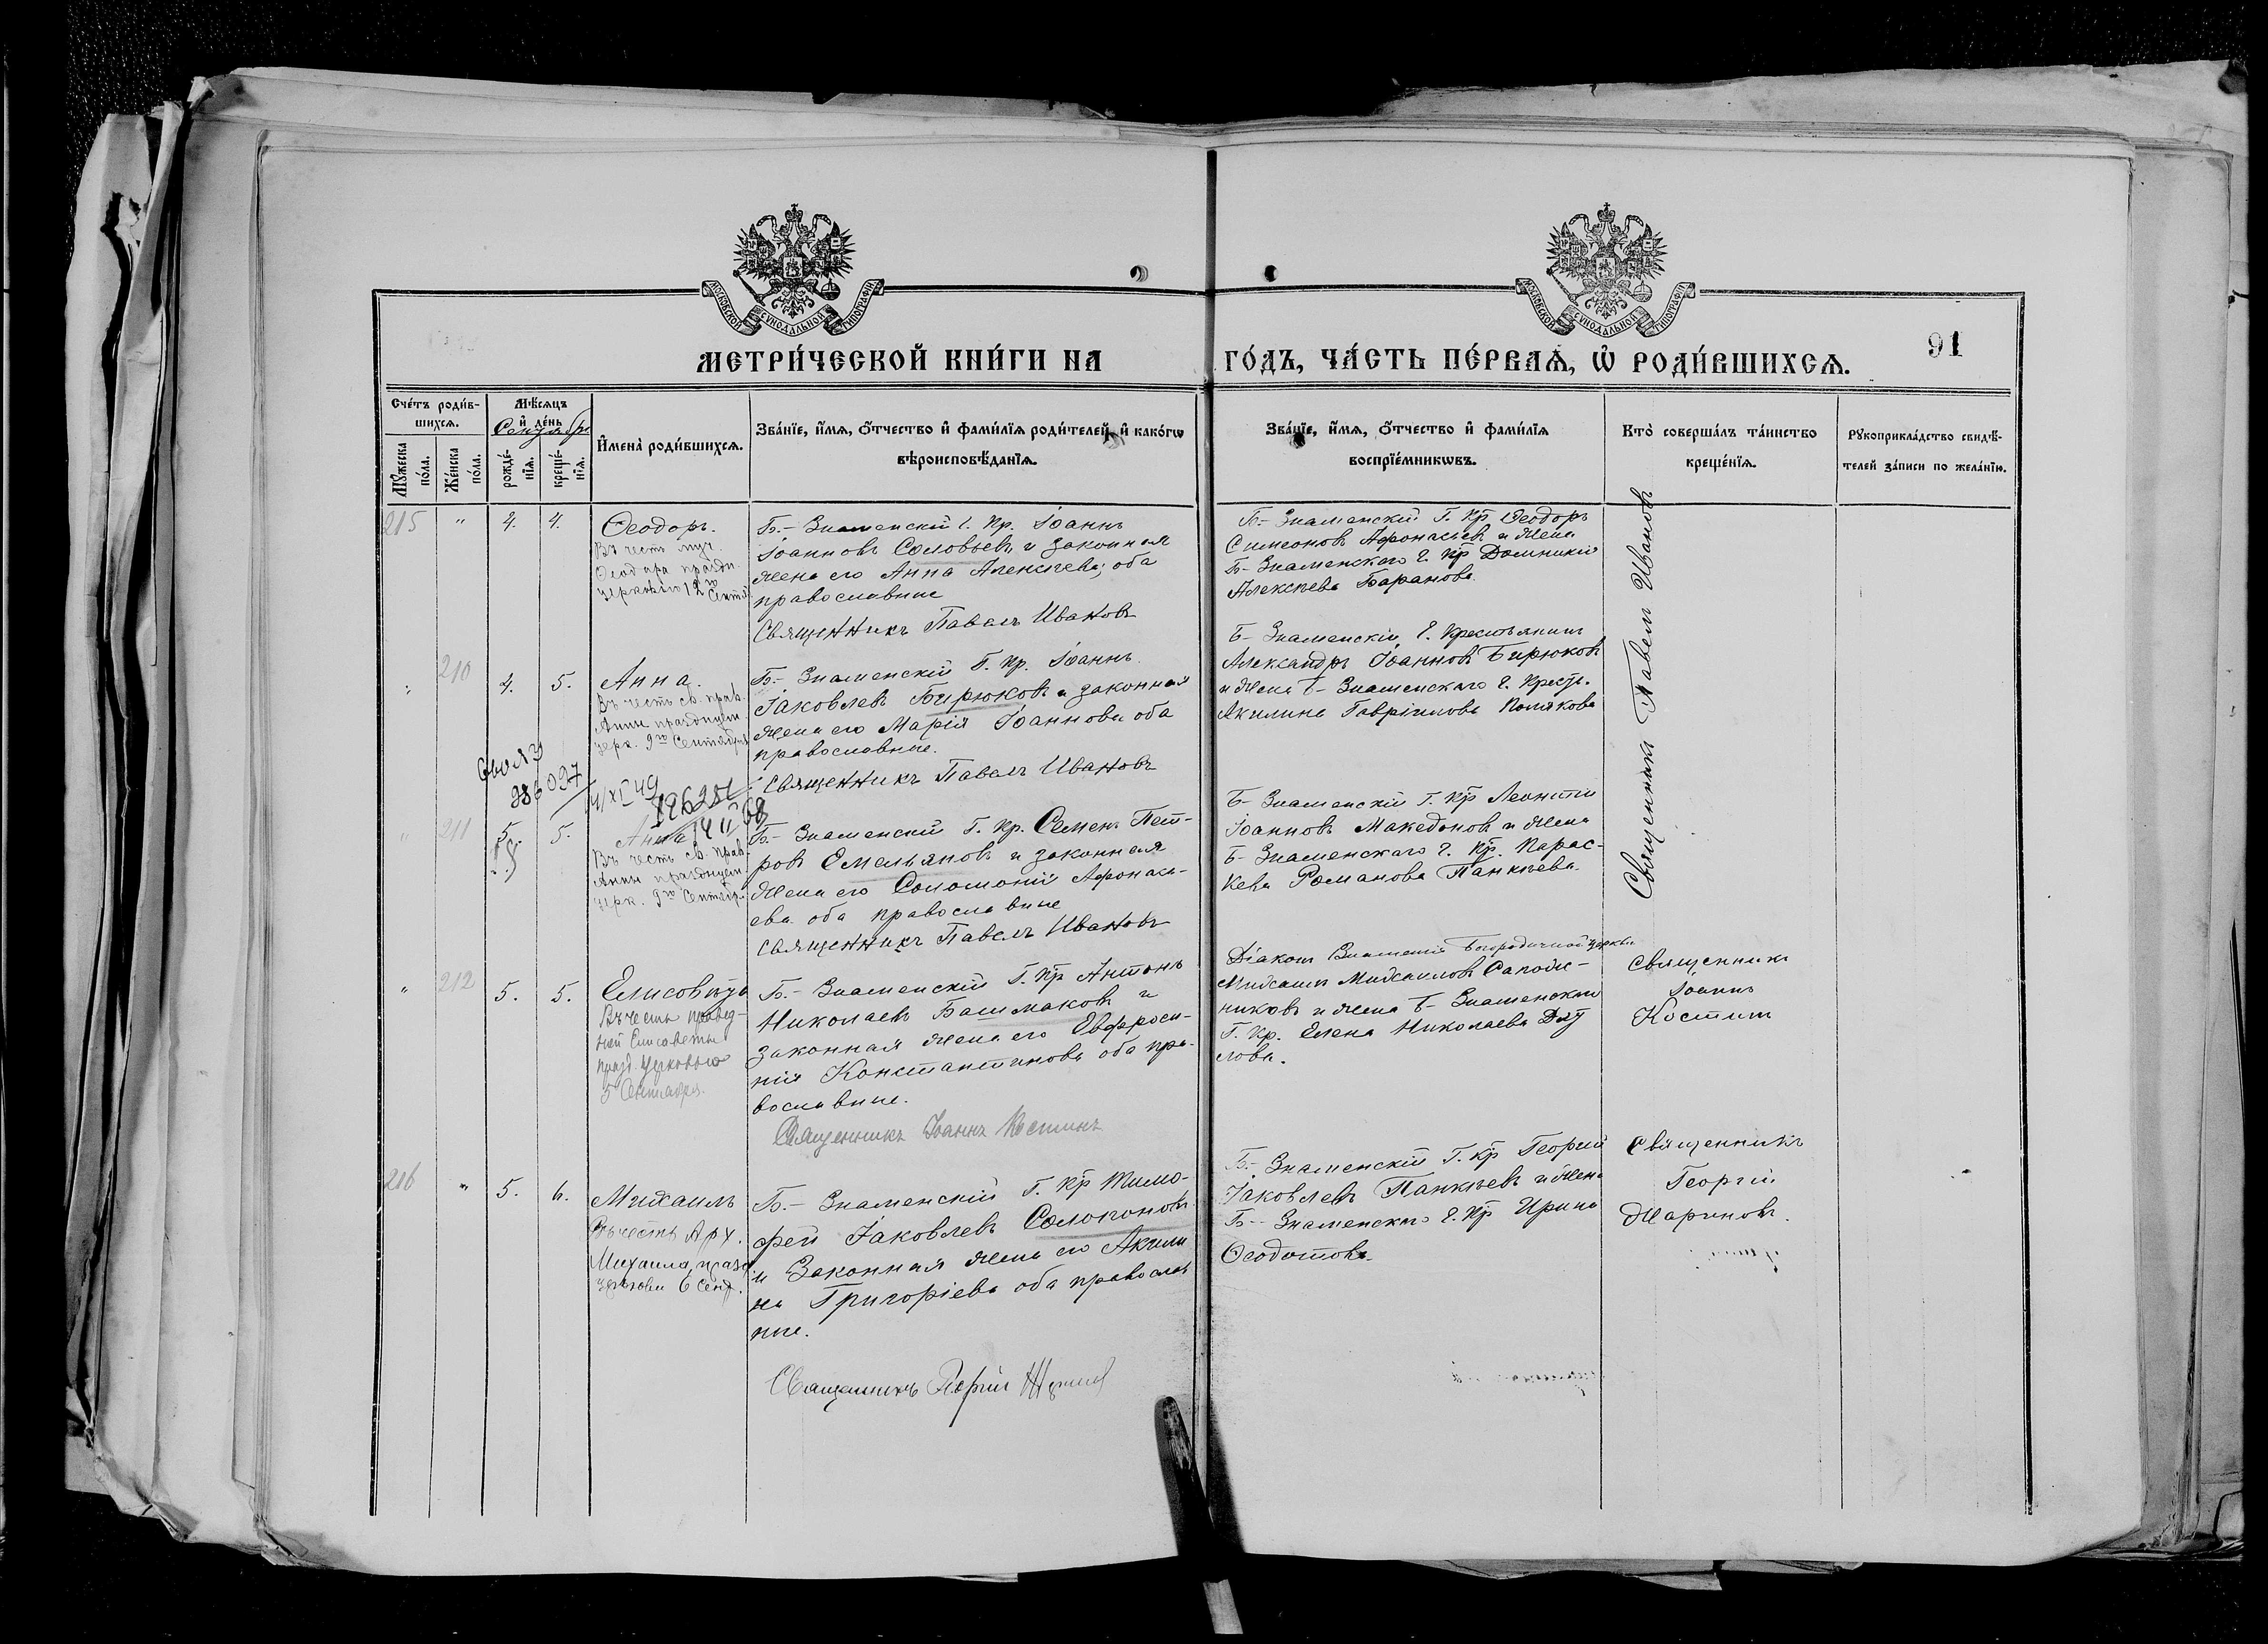 МОСКОВСКОЙ СѴНОДАЛЬНОЙ ТИПОГРАФІИ
МОСКОВСКОЙ СѴНОДАЛЬНОЙ ТИПОГРАФІИ
МЕТРИ́ЧЕСКОЙ КНИ́ГИ НА ГО́ДЪ, ЧА́СТЬ ПЕ́РВАѦ, Ѡ҆ РОДИ́ВШИХСѦ.
91
Сче́тъ роди́в-
шихсѧ.
Мꙋ́жеска
по́ла.
Же́нска
по́ла.
Мѣ́сѧцъ
и҆ де́нь
Сентября
рожде́-
нїѧ.
креще́-
нїѧ.
И҆мена̀ роди́вшихсѧ.
Зва́нїе, и҆́мѧ, о҆́тчество и҆ фами́лїѧ роди́телей, и҆ како́гѡ
вѣроисповѣ́данїѧ.
Зва́нїе, и҆́мѧ, о҆́тчество и҆ фами́лїѧ
воспрїе́мникѡвъ.
Кто̀ соверша́лъ та́инство
креще́нїѧ.
Рꙋкоприкла́дство свидѣ́-
телей за́писи по жела́нїю.
215 " 4. 4.
Ѳеодоръ.
Въ честь муч.
Ѳеодора праздн.
церковью 12го Сентяб.
Б.- Знаменскій Г. Кр. Іоаннъ
Іоанновъ Соловьевъ и законная
жена его Анна Алексѣева; оба
православные
Священникъ Павелъ Ивановъ
Б.- Знаменскій Г. Кр Ѳеодоръ
Симеоновъ Афонасьев и жена
Б- Знаменскаго Г. Кр Домникія
Алексѣева Баранова.
Священникъ Павелъ Ивановъ
" 210 4. 5.
Анна.
Въ честь св. прав.
Анны празднуем.
церк. 9го Сентября
Б.- Знаменскій Г. Кр. Іоаннъ
Іаковлевъ Бирюковъ и законная
жена его Марія Іоаннова оба
православные.
Священникъ Павелъ Ивановъ
Б- Знаменскій Г. Крестьянинъ
Александръ Іоанновъ Бирюковъ
и жена Б- Знаменскаго Г. Крест.
Акилина Гавріилова Полякова
" 211 5. 5.
Анна
Въ честь св. прав.
Анны празднуем.
церк. 9го Сентябр.
Б- Знаменскій Г. Кр. Семенъ Пет-
ровъ Емельяновъ и законная
жена его Соломонія Афонась-
ева оба православные
Священникъ Павелъ Ивановъ
Б- Знаменскій Г. Кр Леонтій
Іоанновъ Македоновъ и жена
Б- Знаменскаго Г. Кр. Парас-
кева Романова Панкѣева.
" 212 5. 5.
Елисовѣта
Въ честь правед-
ной Елисаветы
празд. церковью
5 Сентября.
Б.- Знаменскій Г. Кр Антонъ
Николаевъ Башмаковъ и
законная жена его Евфроси-
нія Константинова оба пра-
вославные.
Священникъ Іоаннъ Костинъ
Діаконъ Знаменія Богородичной церкви
Михаилъ Михаиловъ Сапож-
никовъ и жена Б- Знаменскаго
Г. Кр. Елена Николаева
лова.
Священникъ
Іоаннъ
Костинъ
216 " 5. 6.
Михаилъ
Въ честь Арх.
Михаила, празд.
церковью 6 Сент.
Б.- Знаменскій Г. Кр Тимо-
фей Іаковлевъ Сологоновъ
и Законная жена его Акили
на Григоріева оба православ
ные.
Священникъ Георгій
Б.- Знаменскій Г. Кр Георгій
Іаковлевъ Панкѣевъ и жена
Б- Знаменскаго Г. Кр Ирина
Ѳеодотова
Священникъ
Георгій